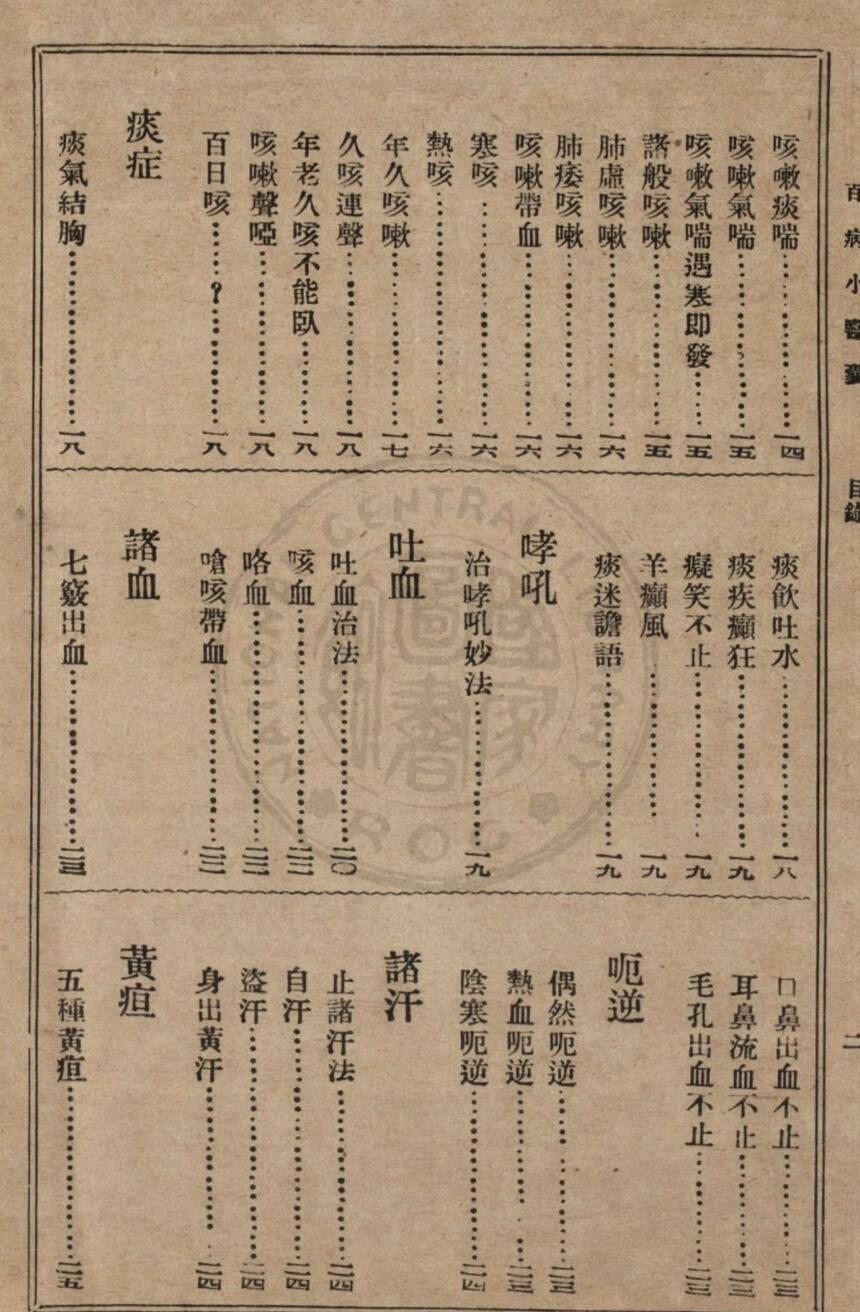 百病小醫藥　目錄　二
咳嗽痰喘……一四
咳嗽氣喘……一五
咳嗽氣喘遇寒即發……一五
諸般咳嗽……一五
肺虛咳嗽……一六
肺痿咳嗽……一六
咳嗽帶血……一六
寒咳……一六
熱咳……一六
年久咳嗽……一七
久咳連聲……一八
年老久咳不能臥……一八
咳嗽聲啞……一八
百日咳……一八
痰症
痰氣結胸……一八
痰飲吐水……一八
痰疾癲狂……一九
癡笑不止……一九
羊癲風……一九
痰迷譫語……一九
哮吼
治哮吼妙法……一九
吐血
吐血治法……二〇
咳血……二二
咯血……二二
嗆咳帶血……二二
諸血
七竅出血……二三
口鼻出血不止……二三
耳鼻流血不止……二三
毛孔出血不止……二三
呃逆
偶然呃逆……二三
熱血呃逆……二三
陰寒呃逆……二四
諸汗
止諸汗法……二四
自汗……二四
盜汗……二四
身出黃汗……二四
黃疸
五種黃疸……二五
CENTRAL
ROC
國家圖書